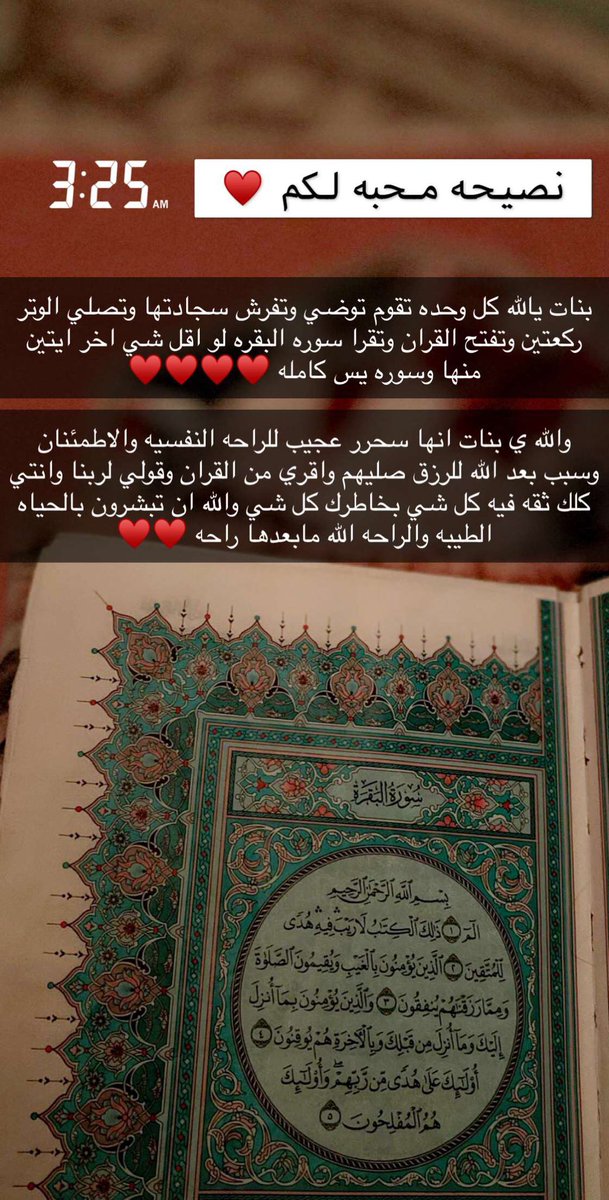 3:25 AM
نصيحه محبه لكم ♥️
بنات يالله كل وحده تقوم توضي وتفرش سجادتها وتصلي الوتر
ركعتين وتفتح القران وتقرا سوره البقره لو اقل شي اخر ايتين
منها وسوره يس كامله ♥️♥️♥️♥️
والله ي بنات انها سحرر عجيب للراحه النفسيه والاطمئنان
وسبب بعد الله للرزق صليهم واقري من القران وقولي لربنا وانتي
كلك ثقه فيه كل شي بخاطرك كل شي والله ان تبشرون بالحياه
الطيبه والراحه الله مابعدها راحه ♥️♥️
سُورَةُ البَقَرَةِ
بِسْمِ ٱللَّهِ ٱلرَّحْمَٰنِ ٱلرَّحِيمِ
الٓمٓ ١ ذَٰلِكَ ٱلْكِتَٰبُ لَا رَيْبَ ۛ فِيهِ ۛ هُدًى
لِّلْمُتَّقِينَ ٢ ٱلَّذِينَ يُؤْمِنُونَ بِٱلْغَيْبِ وَيُقِيمُونَ ٱلصَّلَوٰةَ
وَمِمَّا رَزَقْنَٰهُمْ يُنفِقُونَ ٣ وَٱلَّذِينَ يُؤْمِنُونَ بِمَآ أُنزِلَ
إِلَيْكَ وَمَآ أُنزِلَ مِن قَبْلِكَ وَبِٱلْءَاخِرَةِ هُمْ يُوقِنُونَ ٤
أُو۟لَٰٓئِكَ عَلَىٰ هُدًى مِّن رَّبِّهِمْ ۖ وَأُو۟لَٰٓئِكَ
هُمُ ٱلْمُفْلِحُونَ ٥